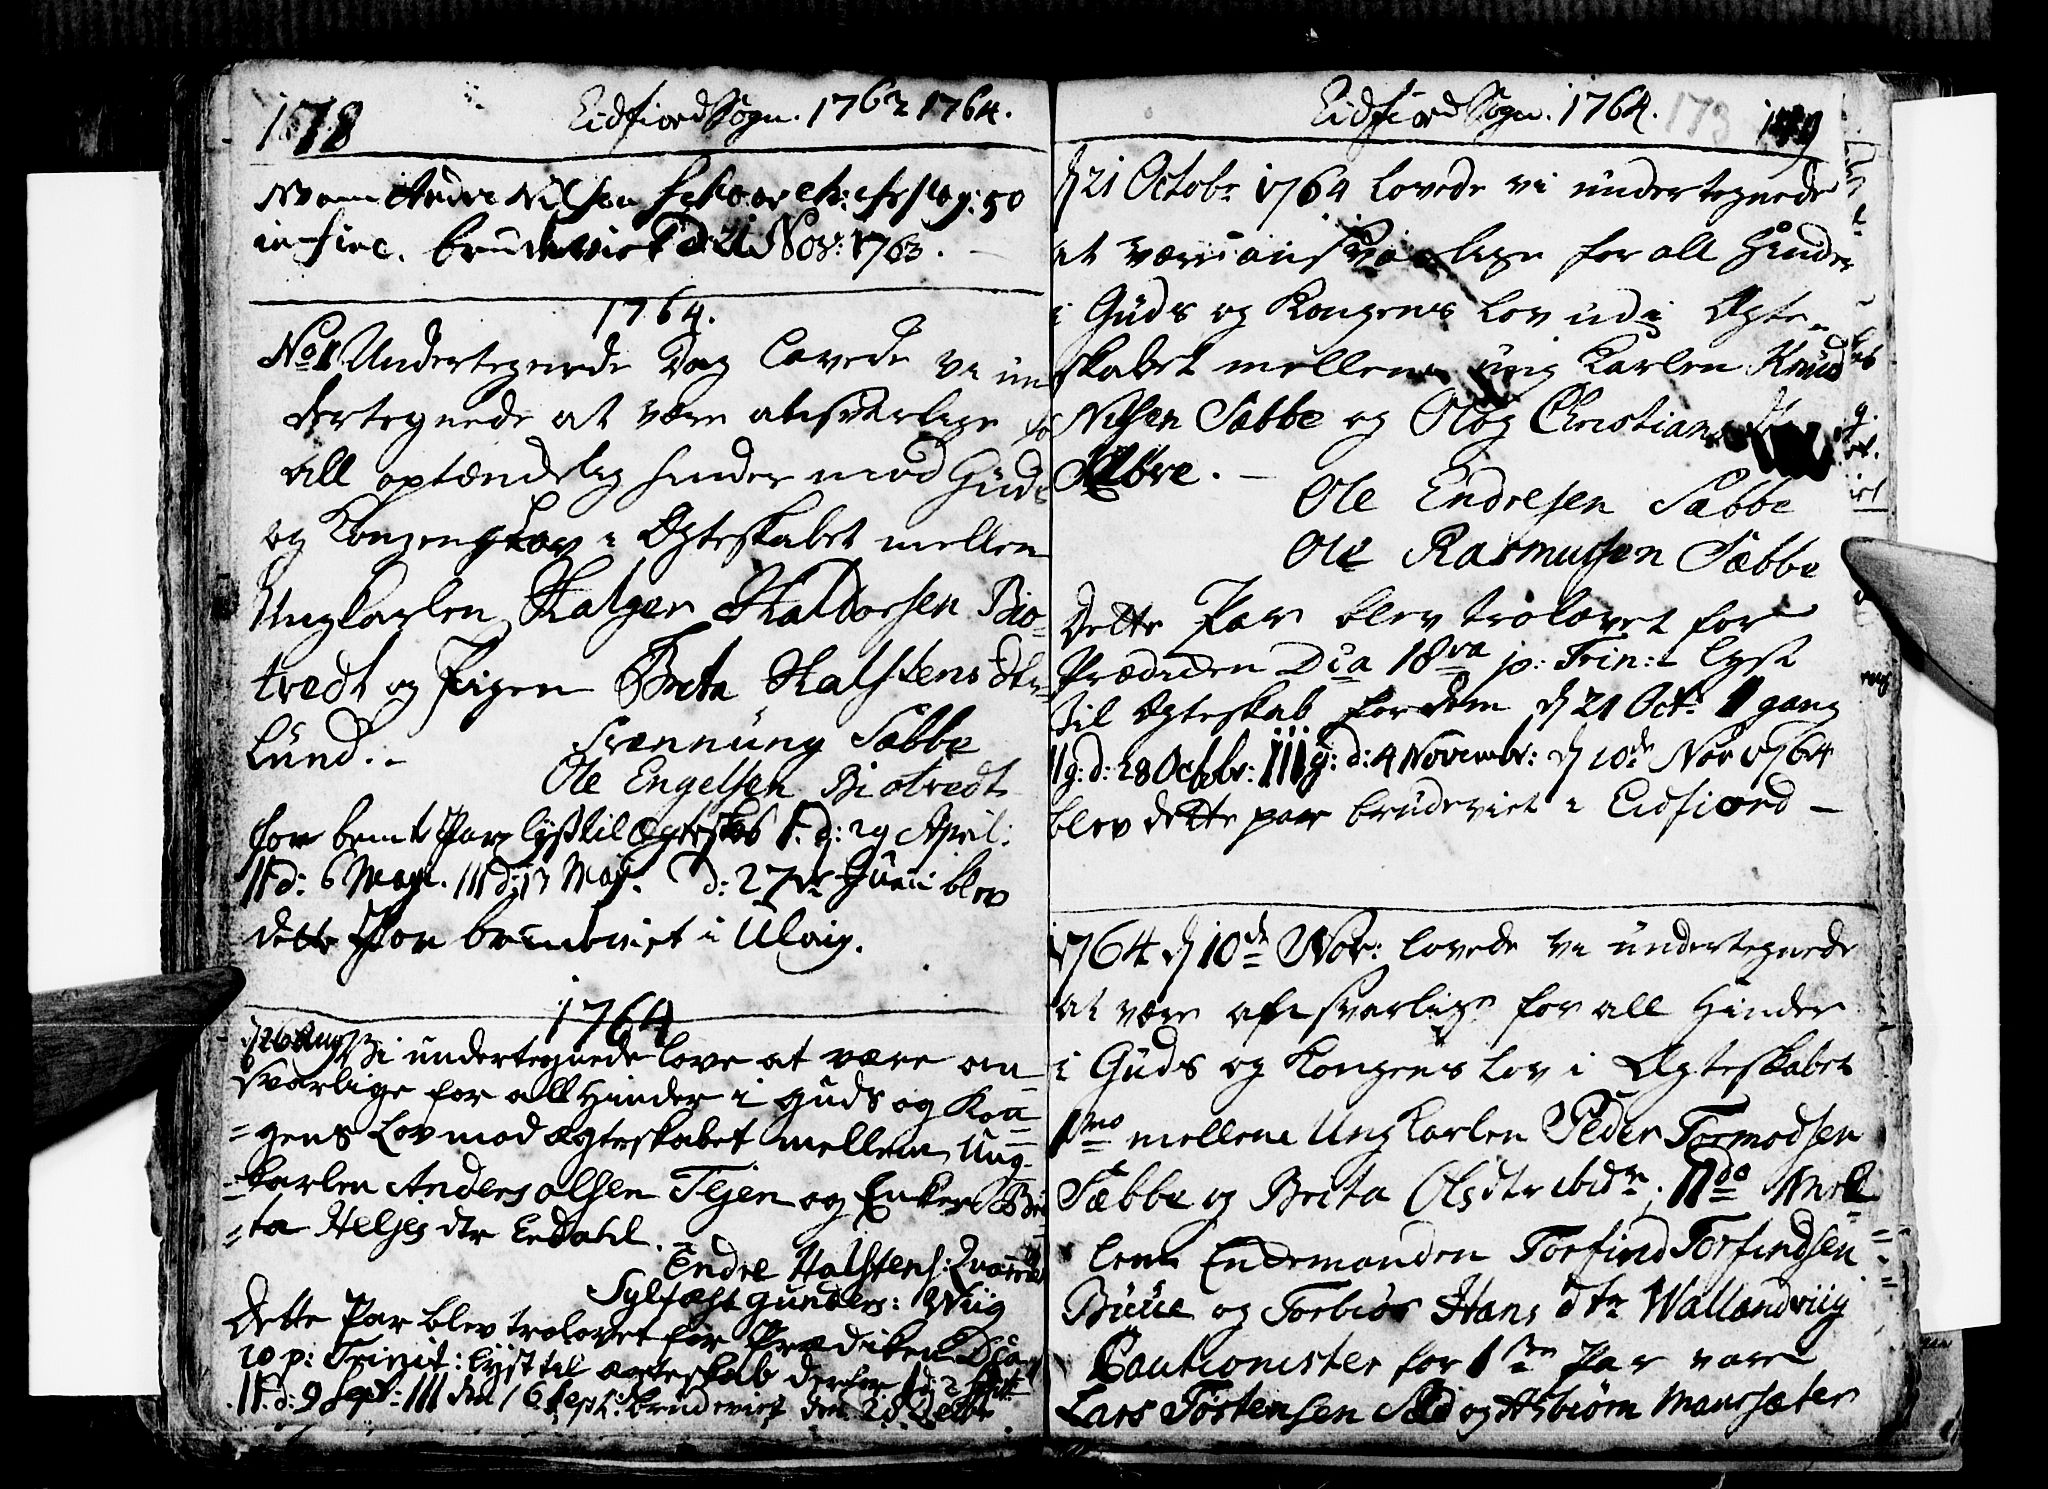 178 Eidfiord Sogn. 1763 1764.
in fine. brudeviet d: 21 Nov: 1763.
1764.
No 1 Undertegnede Dag lovede vi un
dertegnede at være ansvarlige for
all optændelig hinder mod Guds
og Kongens Lov i Ægteskabet mellem
Ungkarlen Halger Haldorsen Bio-
tvedt og Pigen Brita Halstens dtr
Lund.-
Svennung Sæbbe
Ole Engelsen Biotvedt
for bemte Par lyst til Ægteskab I. d: 29 April:
II d: 6 Maji. III d: 13 Maj. d: 27de Junii blev
dette Par brudeviet i Ulvig.
1764
d 26 Aug Vi undertegnede love at være an-
svarlige for all Hinder i Guds og Kon-
gens Lov mod Ægteskabet mellem Ung-
karlen Anders Olsen Tejen og Enken Bri
ta Heljes dtr
Endre Halstens:
Sylfæst Gunders: Wiig
Dette Par blev trolovet for Prædiken Dca
10 p: Trinit: lyst til ægteskab derfor I d 2 Sept:
II d: 9 Sept: III den 16 Sept: brudeviet den
Eidfiord Sogn. 1764. 173 179
d 21 Octobr 1764 lovede vi undertegnede
at være ansvarlige for all Hinder
i Guds og Kongens Lov udi Ægte-
skabet mellem ung Karlen Knud
Nilsen Sæbbe og Olög Christians
Ole Endresen Sæbbe
Ole Rasmussen Sæbbe
Dette Par blev trolovet for
Prædiken Dca 18va p: Trin: lyst
til Ægteskab for dem d 21 Oct: I gang
II g: d: 28 Octbr: III g: d: 4 Novembr: d 10de Nov 1764
blev dette par brudeviet i Eidfiord -
1764 d 10de Nov: lovede vi undertegnede
at være ansvarlige for all Hinder
i Guds og Kongens Lov i Ægteskabet
1mo mellem Ungkarlen Peder Tormodsen
Sæbbe og Brita Olsdtr ibidm; IIdo Mel-
lem Enckemanden Torfind Torfindsen
Buue og Torbiör Hans dtr Wallandviig
Cautionister for 1ste Par vare
Lars Torstensen Sæd og Asbiörn Maursæter